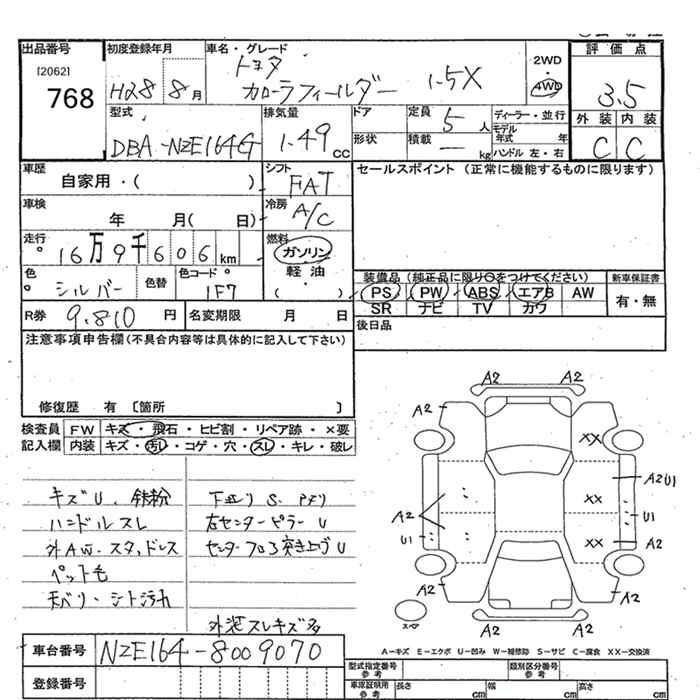 出品番号
[2062]
768
初度登録年月
H28 8月
車名・グレード
トヨタ
カローラフィールダー 1.5X
2WD
4WD
評価点
3.5
外装 内装
C C
型式
DBA-NZE164G
排気量
1.49 CC
ドア
形状
定員
5 人
積載
— kg
ディーラー・並行
モデル年式 年
ハンドル 左・右
車歴
自家用・( )
シフト
FAT
セールスポイント (正常に機能するものに限ります)
車検
年 月( 日)
冷房
A/C
走行
16万9千606 km
燃料
ガソリン
軽油・
( )
色
シルバー
色替
色コード
1F7
装備品 (純正品に限り○をつけてください)
PS PW ABS エアB AW
SR ナビ TV カワ
新車保証書
有・無
R券 9.810 円
名変期限 月 日
後日品
注意事項申告欄(不具合内容等は具体的に記入して下さい)
修復歴 有 〔箇所 〕
検査員 FW キズ・飛石・ヒビ割・リペア跡・×要
記入欄 内装 キズ・汚レ・コゲ・穴・スレ・キレ・破レ
キズU. 鉄粉
ハンドルスレ
外AW.スタッドレス
ペット毛
天バリ・シート汚れ
下廻りS.
右センターピラーU
センターフロア突き上げU
外装スレキズ多
A2 A2
A2 A2
XX
A2 U1
XX
A2
U1
U1
XX
A2
A2 A2
スペア
A2 A2
A-キズ E-エクボ U-凹み W-補修跡 S-サビ C-腐食 XX-交換済
車台番号 NZE164-8009070
登録番号
型式指定番号 参考
類別区分番号 参考
車庫証明用 参考
長さ cm
幅 cm
高さ cm